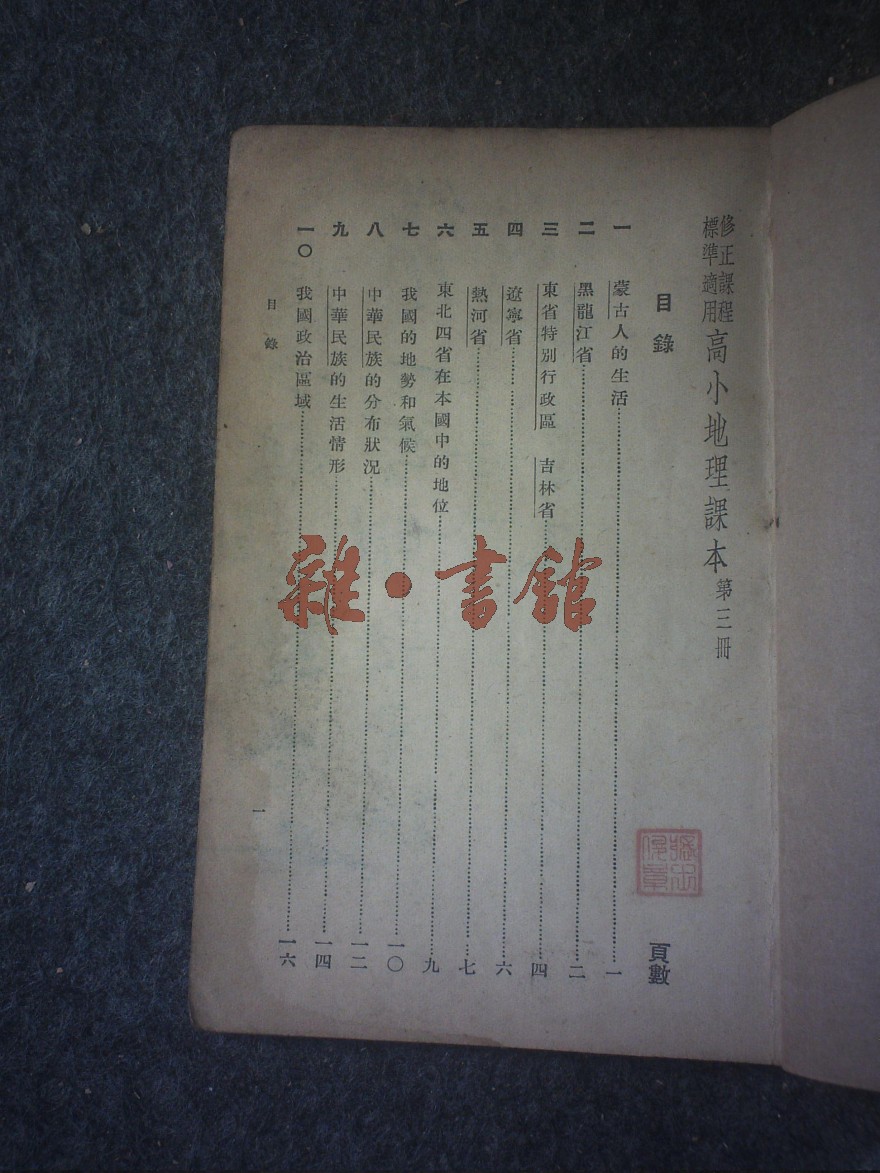 修正課程標準適用 高小地理課本 第三冊
目錄 頁數
一 蒙古人的生活 一
二 黑龍江省 二
三 東省特別行政區 吉林省 四
四 遼寧省 六
五 熱河省 七
六 東北四省在本國中的地位 九
七 我國的地勢和氣候 一〇
八 中華民族的分布狀況 一二
九 中華民族的生活情形 一四
一〇 我國政治區域 一六
目錄 一
雜·書館